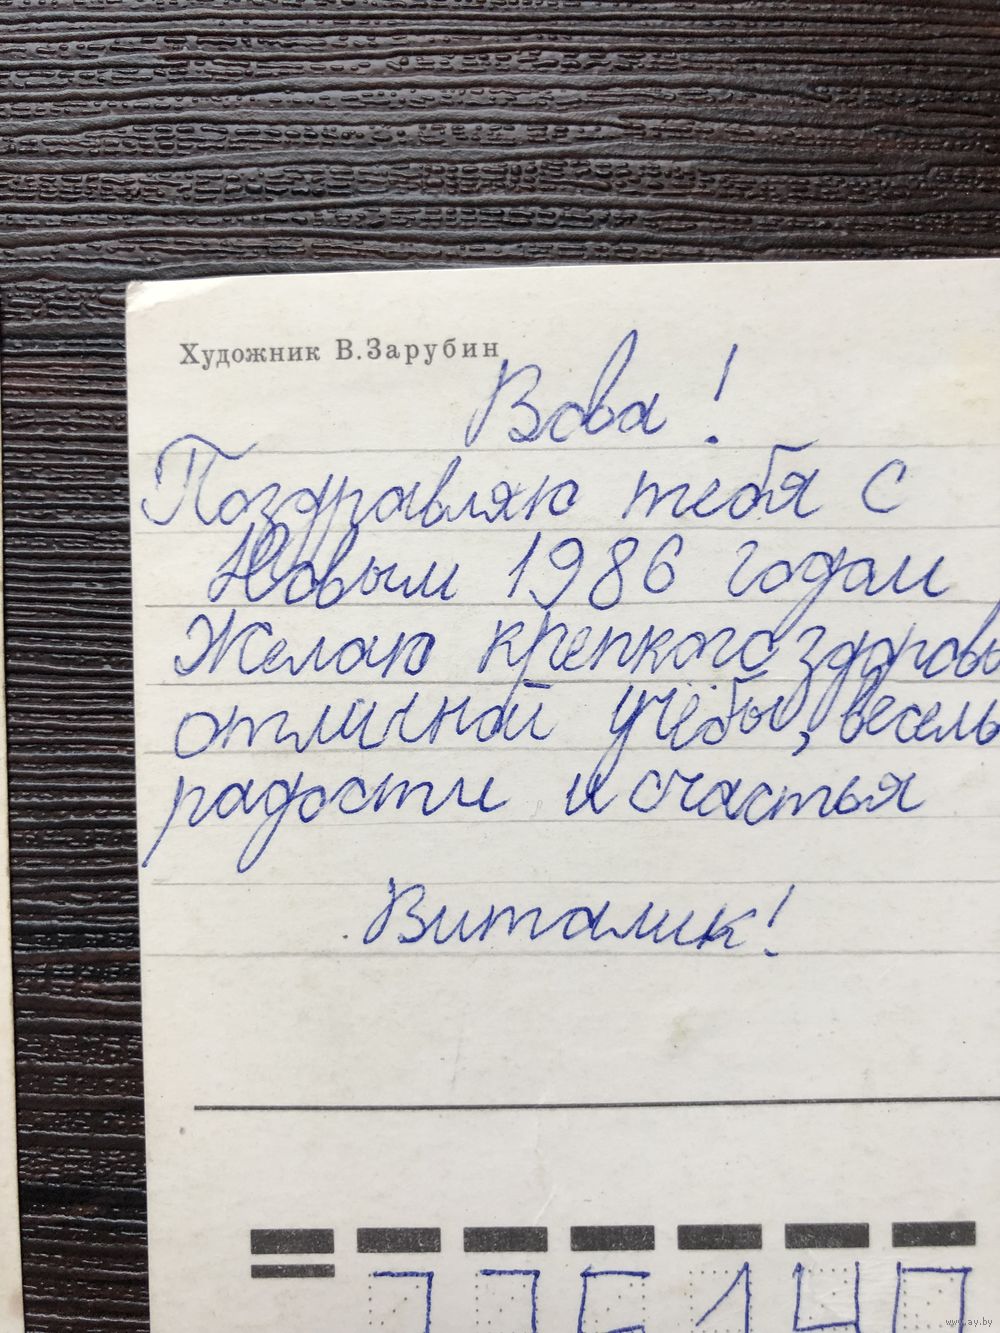 Художник В.Зарубин
Вова!
Поздравляю тебя с
Новым 1986 годом
Желаю крепкого здоровь
отличной учёбы, весель
радости и счастья
Виталик!
www.ay.by